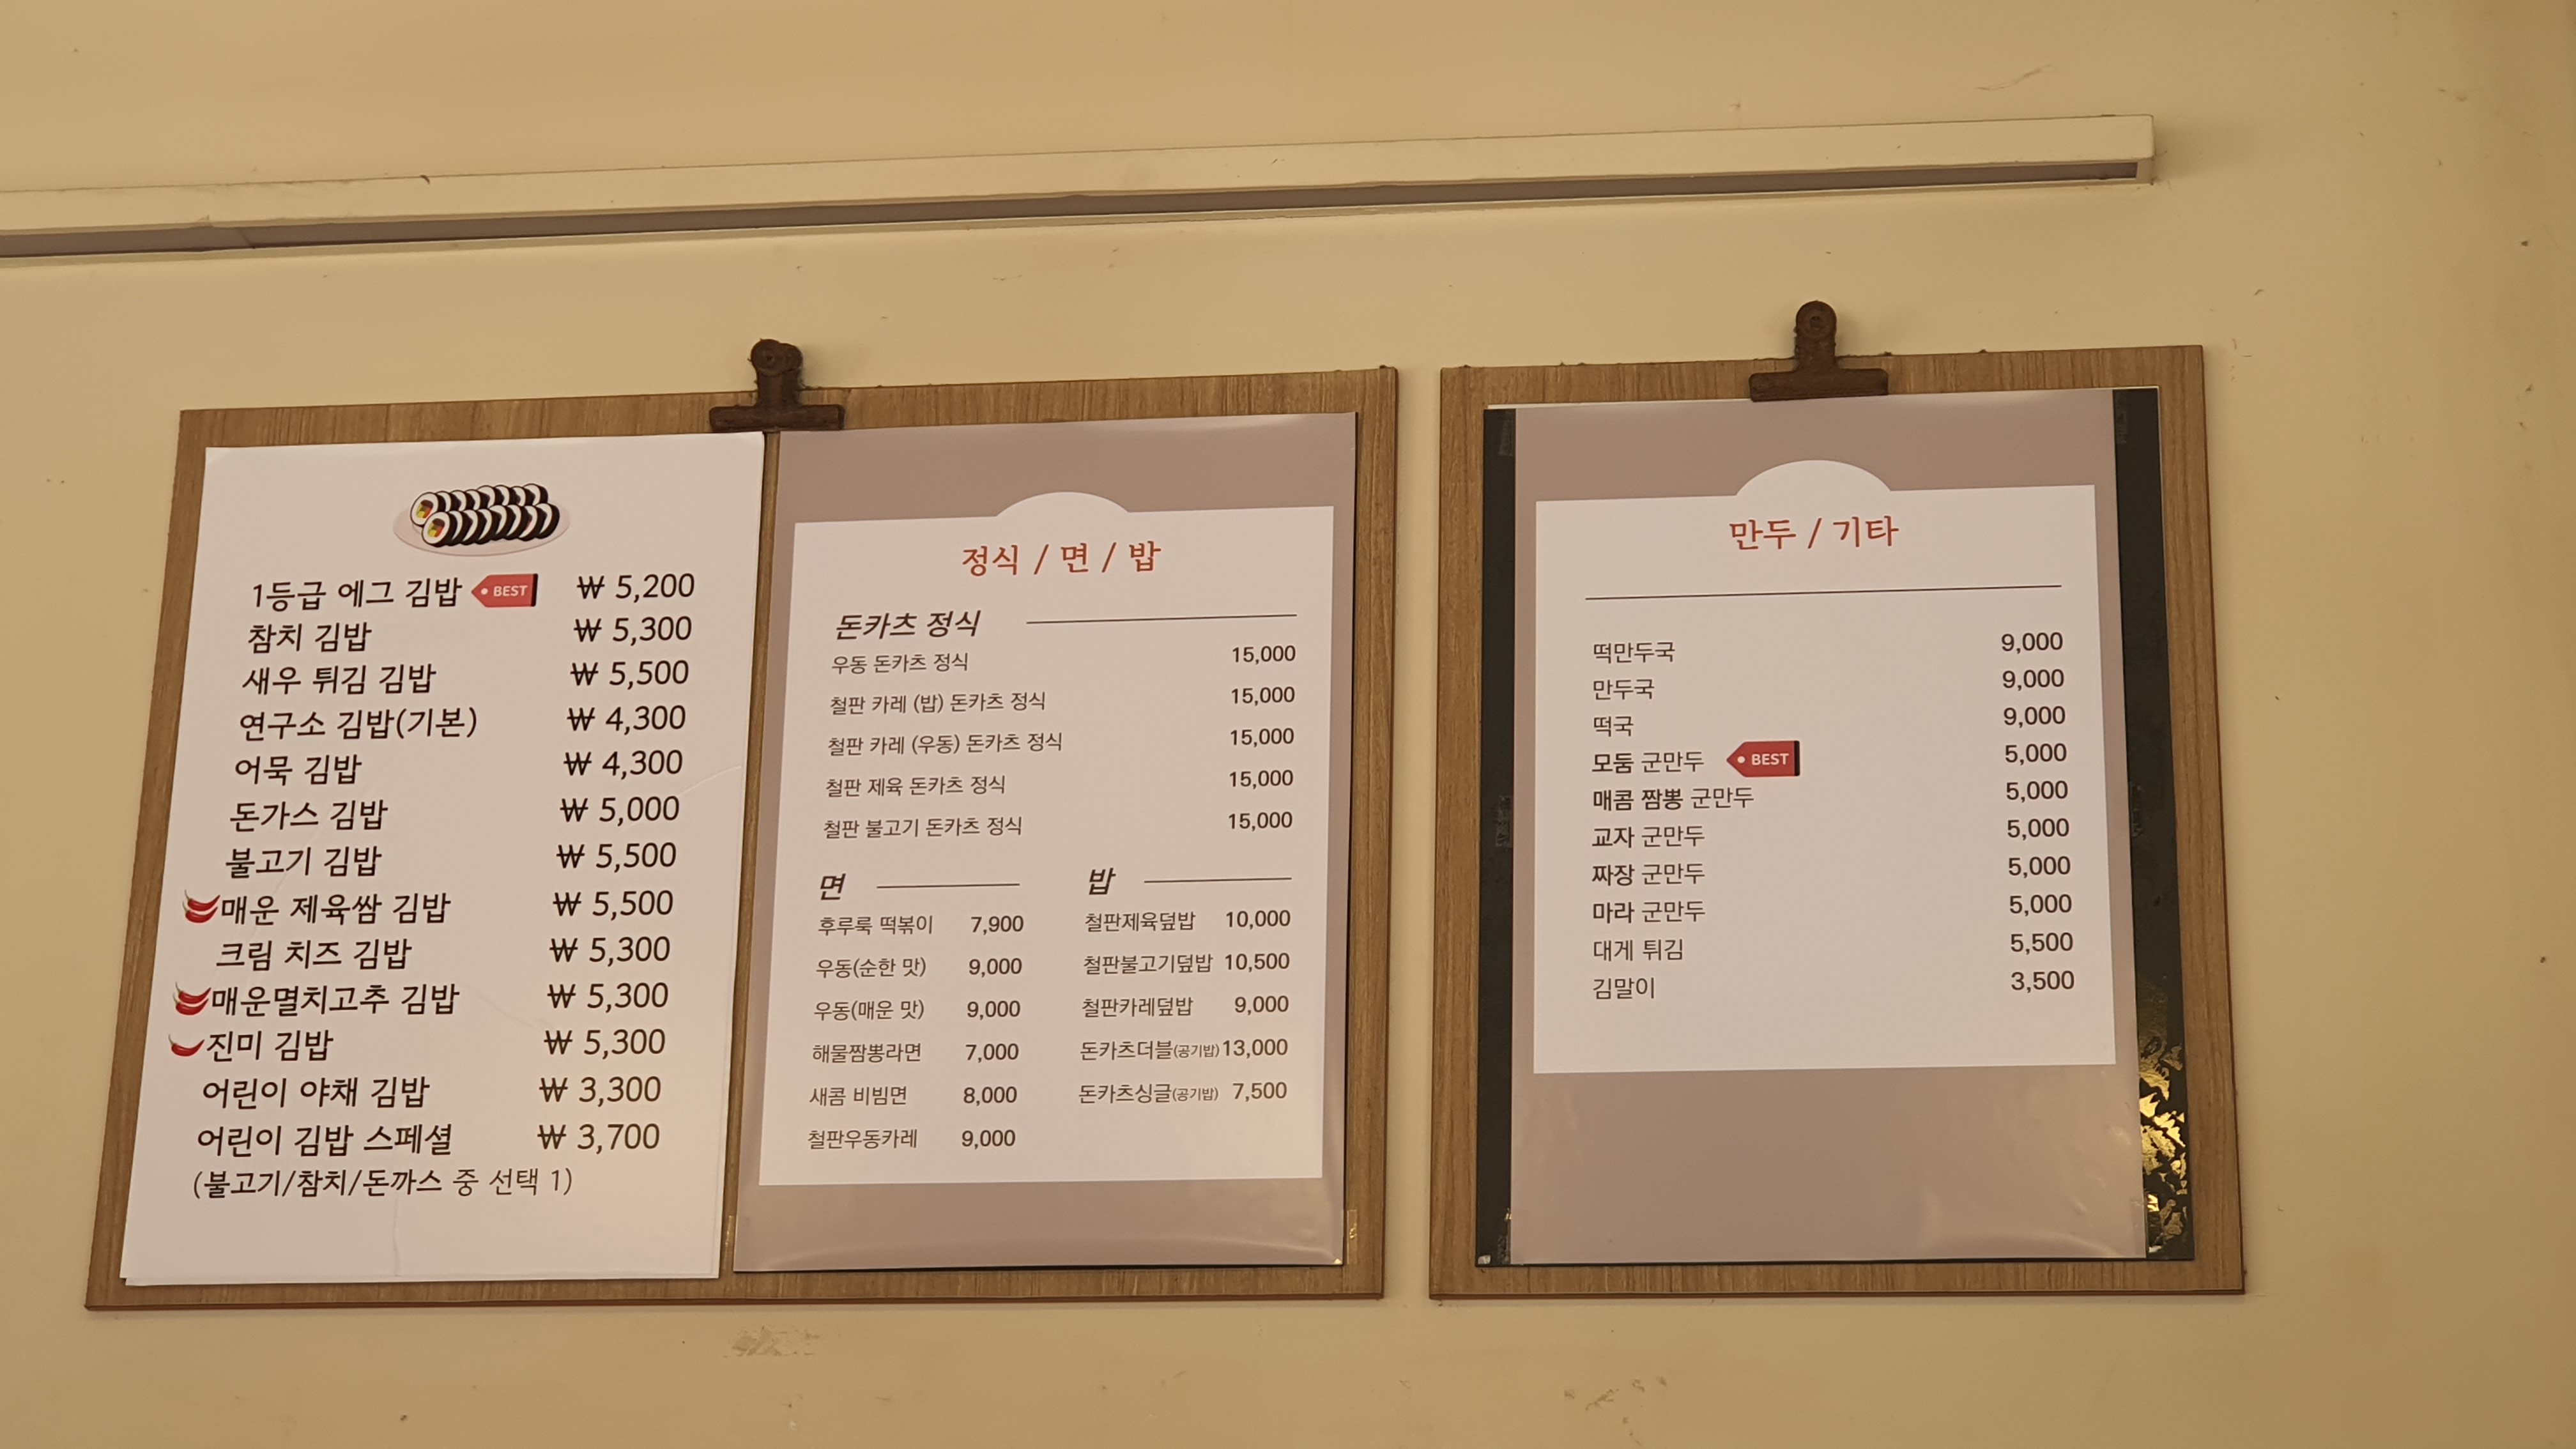 1등급 에그 김밥 BEST ₩ 5,200
참치 김밥 ₩ 5,300
새우 튀김 김밥 ₩ 5,500
연구소 김밥(기본) ₩ 4,300
어묵 김밥 ₩ 4,300
돈가스 김밥 ₩ 5,000
불고기 김밥 ₩ 5,500
매운 제육쌈 김밥 ₩ 5,500
크림 치즈 김밥 ₩ 5,300
매운멸치고추 김밥 ₩ 5,300
진미 김밥 ₩ 5,300
어린이 야채 김밥 ₩ 3,300
어린이 김밥 스페셜 ₩ 3,700
(불고기/참치/돈까스 중 선택 1)
정식 / 면 / 밥
돈카츠 정식
우동 돈카츠 정식 15,000
철판 카레 (밥) 돈카츠 정식 15,000
철판 카레 (우동) 돈카츠 정식 15,000
철판 제육 돈카츠 정식 15,000
철판 불고기 돈카츠 정식 15,000
면
후루룩 떡볶이 7,900
우동(순한 맛) 9,000
우동(매운 맛) 9,000
해물짬뽕라면 7,000
새콤 비빔면 8,000
철판우동카레 9,000
밥
철판제육덮밥 10,000
철판불고기덮밥 10,500
철판카레덮밥 9,000
돈카츠더블(공기밥) 13,000
돈카츠싱글(공기밥) 7,500
만두 / 기타
떡만두국 9,000
만두국 9,000
떡국 9,000
모둠 군만두 BEST 5,000
매콤 짬뽕 군만두 5,000
교자 군만두 5,000
짜장 군만두 5,000
마라 군만두 5,000
대게 튀김 5,500
김말이 3,500